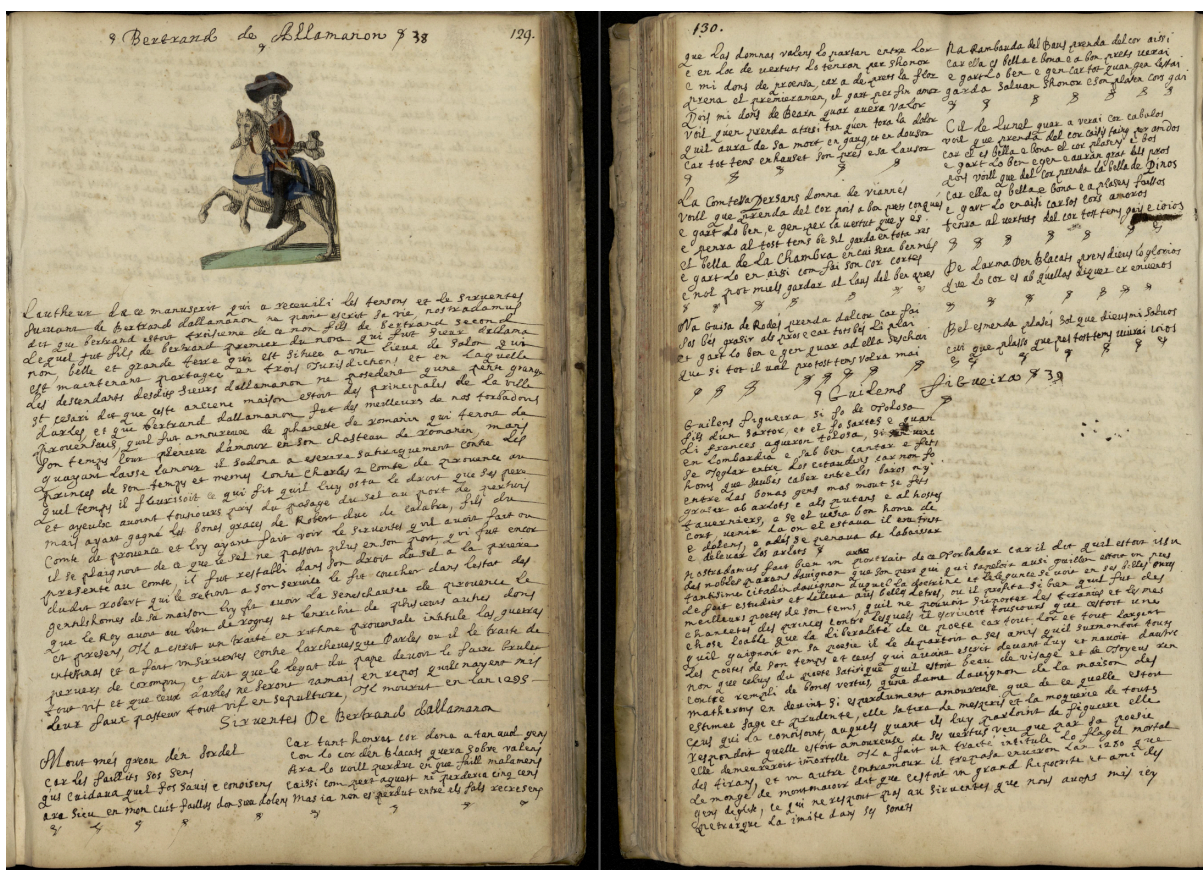 Bertrand de Allamanon 38
129.
Lautheur de ce manuscrit qui a receuili les tensons et le siruentes
suiuant de Bertrand dallamanon ne point escrit sa vie, nostradamus
dit que bertrand estoit troisieme de ce non fils de bertrand second
lequel fut fils de bertrand premier du nom qui fust sieur dallama
non, belle et grande terre qui est située a vne lieue de salon qui
est maintenant partagée en trois Jurisdictions et en laquelle
les descendants desdits sieurs dallamanon ne posedent qune petite grange
et celari dit que ceste anciene maison estoit des principales de la ville
darles et que bertrand dallamanon fut des meilleurs de nos torbadours
prouensaus quil fut amoureuse de phanete de romanin qui tenoit de
son temps cour pleniere damour en son chasteau de romanin mais
quayant laissé lamour il sadona a escrire satiriquement contre les
princes de son temps et mesmes contre charles 2 comte de prouence au
quel temps il fleurissoit ce qui fit quil luy osta le droit que ses pere
et ayeulx auoint tousiours pris du pasage du sel au port de pertuis
mais ayant gagné les bones graces de Robert duc de calabre, fils du
comte de prouence et luy ayant fait voir le siruentes qu'il auoit fait ou
il se plaignoit de ce que le sel ne passoit plus en son port, qui fut encor
presenté au comte, il fut restabli dans son droit du sel a la priere
dudit robert qui le retint a son seruice le fit coucher dans lestat des
gentilshomes de sa maison luy fit auoir la seneschausee de prouence le
que le Roy auoit au lieu de rognes et lenrichit de plusieurs autres dons
et presens, Il a escrit un traité en rithme prouensale intitulé las guerras
intestinas et a fait un siruentes contre larcheuesque darles ou il le traite de
peruers de corompu, et dit que le legat du pape deuoit le faire bruler
tout vif et que ceux darles ne seront jamais en repos quils nayent mis
leur faux pasteur tout vif en sepulture, Il mourut en lan 1295
Siruentes De Bertrand dallamanon
Mout mes greou den sordel
car les faillits sos sens
qus cuidaua quel fos sauis e conoisens
ara sieu en mon cuit faillos don sueu dolens
Car tant honrat cor dona a tan aud gens
Con lo cor den blacats quera sobre valens
Ara lo voill perdre en que faill malamens
caissi com pert aguest ni perderia cinq cens
Mas ia non es perdut entre els fals recresens
130.
que las domnas valens lo partan entre lor
e en loc de uertuts lo tenran per shonor
e mi dons de proensa, car a de prets la flor
prena el premieramen, el gart per fin amor
Pois mi dons de Bearn quar auera valor
voil quen prenda atresi tan quen tora la dolor
quil aura de sa mort en gaug et en dousor
car tot tems enhauset son pres e sa lausor
La Comtessa Dersans domna de vianes
voill que prenda del cor pois a bon prets conques
e gart lo ben, e gen per la uertut que y es
e penra al tost tems be sil garda en tota res
el bella de la chambra en cui sera ben mes
e gart lo en aisi com fai son cor cortes
e nol pot miels gardar al laus del ben apres
Na Guisa de Rodes prenda dal cor car fai
sos bes grasir als pros e car tots bes li plai
et gart lo ben e gen quar ad ella seschai
que si tot il val pro tost tems volra mai
Na Rambauda del Baus prenda del cor aissi
car ella es bella e bona e a bon prets verai
e gart lo ben e gen car tot quan gen lestai
garda saluan shonor e son plasen cors gai
Cil de Lunel quar a verai cor cabalos
voil que prenda del cor caisis taing per amdos
car el es bella e bona el cor plasens e bos
e gart lo ben e gen e auran grat dels pros
pois voill que del cor prenda la bella de Pinos
car ella es bella e bona e a plasens faissos
e gart lo en aisi carsos cors amoros
tenra al uertuts del cor tost tems gais e ioios
De larma Den blacats prens dieus lo glorios
que lo cor es ab quellas diquer er enueios
Bel esmenda plases sol que dieus mi salues
cui que plasso que pes tost tems viurai ioios
Guilems Figueira 39
Guilens figueira si fo de Tolosa
fils dun sartor, et el fo sartes e quan
li frances agueron tolosa, si sen uenc
en lombardia e sab ben cantar e fets
se joglar entre los citaudins car non fo
homs que saubes caber entre los baros ny
entre las bonas gens mas mout se fets
grasir als arlots e als putans e al hostes
tauerniers, a se el uesia bon home de
cort, uenir la on el estaua il era trist
e dolens, e ades se penaua de labaissar
e deleuar los arlots
nostradamus fait bien un autre portrait de ce torbadour car il dit quil estoit issu
des nobles parans dauignon que son pere qui qui sapeloit aussi guillen estoit un preus
tantissime citadin dauignon duquel la doctrine et lelegance se voit en ses filles, quil
le fait estudier et leleua aus belles letres, ou il profita si bien quil fut des
meilleurs poetes de son tems, quil ne pouuoit suporter les tiranies et les mes
chancetes des princes contre lesquels il escriuoit tousiours que cestoit une
chose loable que la liberalité de ce poete car tout lor et tout largent
quil gaignoit en sa poesie il le departoit a ses amis quil surmontoit tous
les poetes de son temps et ceus qui auoint escrit deuant luy et nauoit dautre
non que celuy du poete satirique quil estoit beau de visage et de joyeux ren
contre rempli de bones vertus, qune dame dauignon de la maison des
matherons en deuint si esperdument amoureuse que de ce quelle estoit
estimée sage et prudente, elle satira le mespris et la moquerie de touts
ceus qui la conoisoint, auquels quant ils luy parloint de figuiere elle
respondoit quelle estoit amoureuse de ses vertus veu que par sa poesie
elle demeureroit imortelle Il a fait un traité intitulé lo flagel mortal
des tirans, et un autre contramour il trepasa enuiron lan 1270 que
le monge de montmaior dit que cestoit un grand hipocrite et ami des
gens deglise, ce qui ne respont pas au siruentes que nous auons mis icy
petrarque la imité dans ses sonets